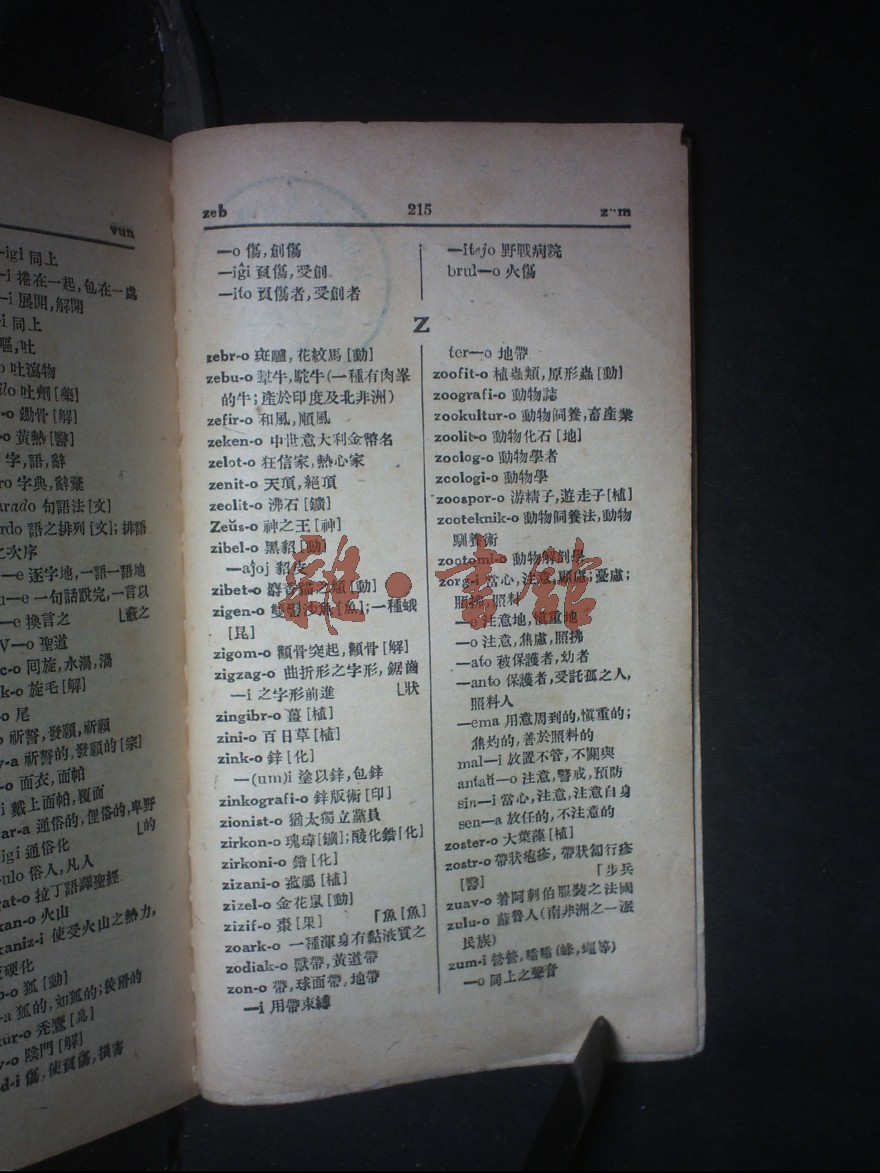 vun
—igi 同上
—i 捲在一起,包在一處
—i 展開,解開
—i 同上
嘔,吐
o 吐瀉物
ilo 吐劑[藥]
-o 鋤骨[解]
-o 黃熱[醫]
字,語,辭
ro 字典,辭彙
arado 句語法[文]
ordo 語之排列[文];排語
之次序
—e 逐字地,一語一語地
u—e 一句話說完,一言以
—e 換言之 └蔽之
V—o 聖道
c-o 回旋,水渦,渦
k-o 旋毛[解]
-o 尾
-o 祈誓,發願,祈願
v-a 祈誓的,發願的[宗]
-o 面衣,面帕
-i 戴上面帕,覆面
ar-a 通俗的,俚俗的,卑野
-igi 通俗化 └的
ulo 俗人,凡人
gat-o 拉丁語譯聖經
kan-o 火山
kaniz-i 使受火山之熱力,
硬化
p-o 狐[動]
-a 狐的,如狐的;狡猾的
tur-o 禿鷹[鳥]
v-o 陰門[解]
d-i 傷,使負傷,損害
zeb 215 zum
—o 傷,創傷
—iĝi 負傷,受創
—ito 負傷者,受創者
—itejo 野戰病院
brul—o 火傷
Z
zebr-o 斑驢,花紋馬[動]
zebu-o 犎牛,駝牛(一種有肉峯
的牛;產於印度及北非洲)
zefir-o 和風,順風
zeken-o 中世意大利金幣名
zelot-o 狂信家,熱心家
zenit-o 天頂,絕頂
zeolit-o 沸石[鑛]
Zeŭs-o 神之王[神]
zibel-o 黑貂[動]
—aĵoj 貂皮
zibet-o 麝香猫之類[動]
zigen-o 雙髻沙魚[魚];一種蛾
[昆]
zigom-o 顴骨突起,顴骨[解]
zigzag-o 曲折形之字形,鋸齒
—i 之字形前進 └狀
zingibr-o 薑[植]
zini-o 百日草[植]
zink-o 鋅[化]
—(um)i 塗以鋅,包鋅
zinkografi-o 鋅版術[印]
zionist-o 猶太獨立黨員
zirkon-o 瑰瑋[鑛];酸化鋯[化]
zirkoni-o 鋯[化]
zizani-o 菰屬[植]
zizel-o 金花鼠[動]
zizif-o 棗[果] 「魚[魚]
zoark-o 一種渾身有黏液質之
zodiak-o 獸帶,黃道帶
zon-o 帶,球面帶,地帶
—i 用帶束縛
ter—o 地帶
zoofit-o 植蟲類,原形蟲[動]
zoografi-o 動物誌
zookultur-o 動物飼養,畜産業
zoolit-o 動物化石[地]
zoolog-o 動物學者
zoologi-o 動物學
zoospor-o 游精子,遊走子[植]
zooteknik-o 動物飼養法,動物
馴養術
zootomi-o 動物解剖學
zorg-i 當心,注意,顧慮;憂慮;
照拂,照料
—e 注意地,慎重地
—o 注意,焦慮,照拂
—ato 被保護者,幼者
—anto 保護者,受託孤之人,
照料人
—ema 用意周到的,慎重的;
焦灼的,善於照料的
mal—i 放置不管,不關與
antaŭ—o 注意,警戒,預防
sin—i 當心,注意,注意自身
sen—a 放任的,不注意的
zoster-o 大葉藻[植]
zostr-o 帶狀疱疹,帶狀匐行疹
[醫] 「步兵
zuav-o 着阿剌伯服裝之法國
zulu-o 蘇魯人(南非洲之一派
民族)
zum-i 營營,嗡嗡(蜂,蠅等)
—o 同上之聲音
雜·書館